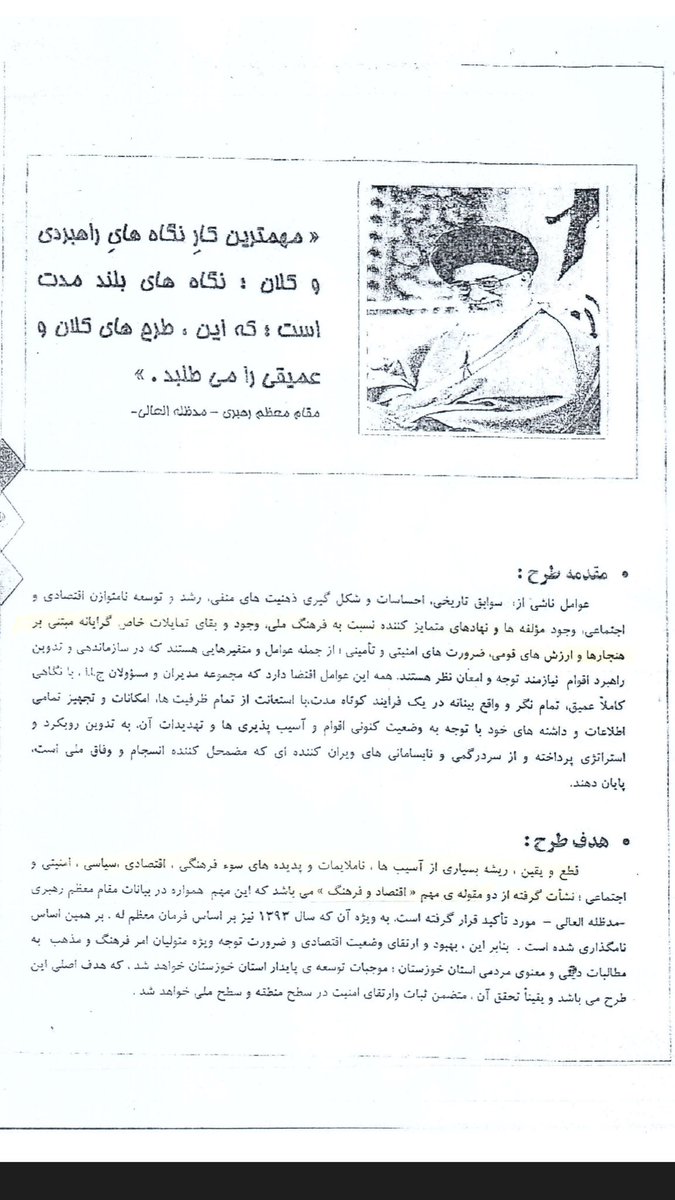 « مهمترین کارِ نگاه هایِ راهبردی
و کلان ؛ نگاه های بلند مدت
است ؛ که این ، طرح های کلان و
عمیقی را می طلبد . »
مقام معظم رهبری – مدظله العالی-
• مقدمه طرح :
عوامل ناشی از: سوابق تاریخی، احساسات و شکل گیری ذهنیت های منفی، رشد و توسعه نامتوازن اقتصادی و
اجتماعی، وجود مؤلفه ها و نهادهای متمایز کننده نسبت به فرهنگ ملی، وجود و بقای تمایلات خاص گرایانه مبتنی بر
هنجارها و ارزش های قومی، ضرورت های امنیتی و تأمینی ؛ از جمله عوامل و متغیرهایی هستند که در سازماندهی و تدوین
راهبرد اقوام نیازمند توجه و امعان نظر هستند. همه این عوامل اقتضا دارد که مجموعه مدیران و مسؤولان ج.ا.ا ، با نگاهی
کاملاً عمیق، تمام نگر و واقع بینانه در یک فرایند کوتاه مدت،با استعانت از تمام ظرفیت ها، امکانات و تجهیز تمامی
اطلاعات و داشته های خود با توجه به وضعیت کنونی اقوام و آسیب پذیری ها و تهدیدات آن، به تدوین رویکرد و
استراتژی پرداخته و از سردرگمی و نابسامانی های ویران کننده ای که مضمحل کننده انسجام و وفاق ملی است،
پایان دهند.
• هدف طرح :
قطع و یقین ، ریشه بسیاری از آسیب ها ، ناملایمات و پدیده های سوء فرهنگی ، اقتصادی ،سیاسی ، امنیتی و
اجتماعی ؛ نشأت گرفته از دو مقوله ی مهم « اقتصاد و فرهنگ » می باشد که این مهم همواره در بیانات مقام معظم رهبری
-مدظله العالی – مورد تأکید قرار گرفته است. به ویژه آن که سال ۱۳۹۳ نیز بر اساس فرمان معظم له . بر همین اساس
نامگذاری شده است . بنابر این ، بهبود و ارتقای وضعیت اقتصادی و ضرورت توجه ویژه متولیان امر فرهنگ و مذهب به
مطالبات دینی و معنوی مردمی استان خوزستان ؛ موجبات توسعه ی پایدار استان خوزستان خواهد شد ، که هدف اصلی این
طرح می باشد و یقیناً تحقق آن ، متضمن ثبات وارتقای امنیت در سطح منطقه و سطح ملی خواهد شد .